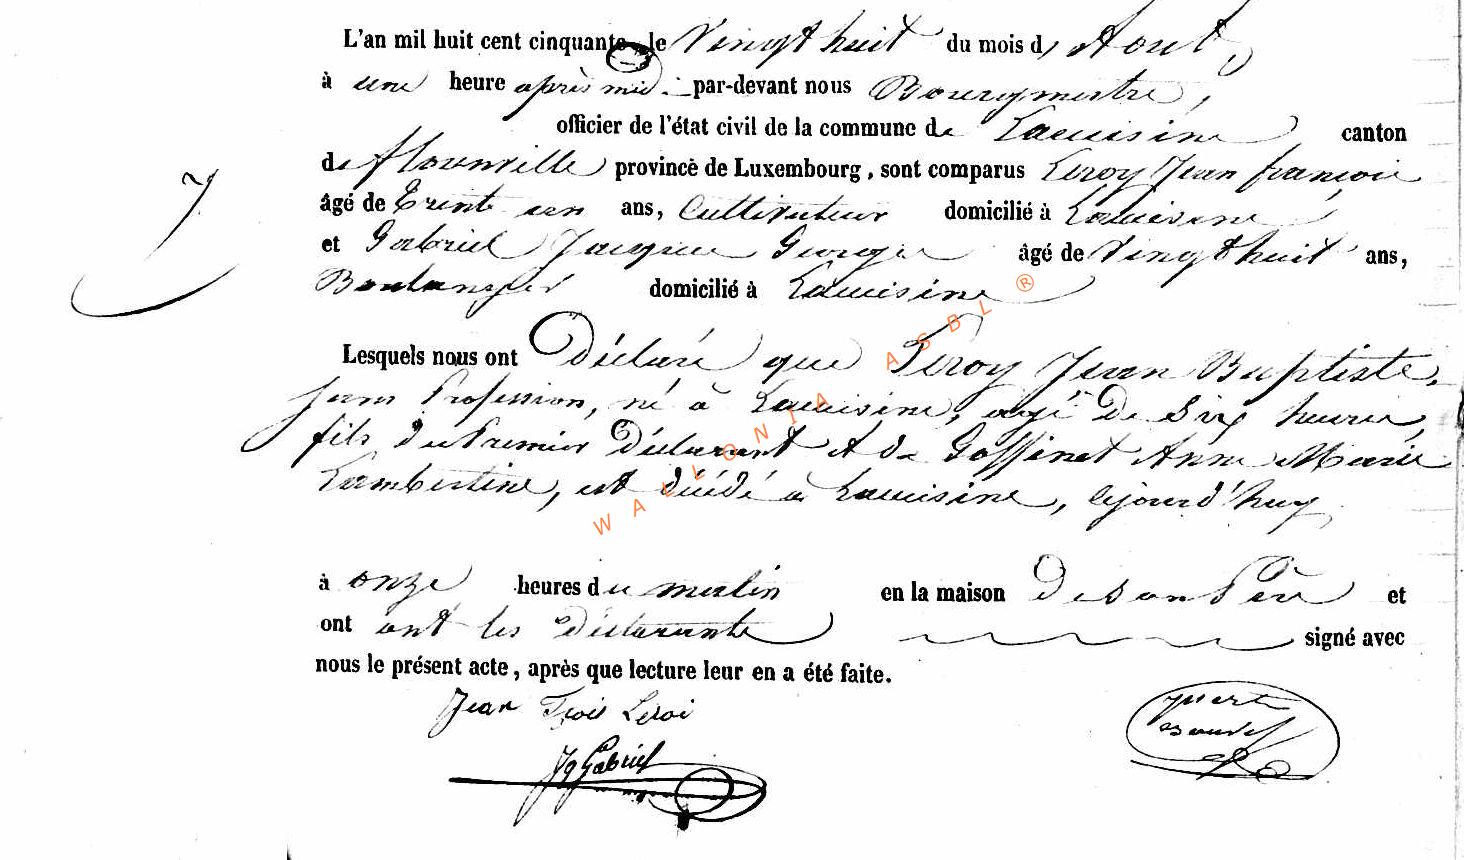 L'an mil huit cent cinquante le Vingt huit du mois d Aout,
à une heure après midi par-devant nous Bourgmestre,
officier de l'état civil de la commune de Lacuisine canton
de florenville province de Luxembourg, sont comparus Leroy Jean francois
âgé de Trente un ans, Cultivateur domicilié à Lacuisine
et Gabriel Jacques George âgé de Vingt huit ans,
7
Boulanger domicilié à Lacuisine
Lesquels nous ont Déclaré que Leroy Jean Baptiste,
sans Profession, né à Lacuisine, agé De Six heures,
fils du Premier Déclarant et de Goffinet Anne Marie
Lambertine, est décédé à Lacuisine, cejourd'huy
WALLONIA ASBL ®
à onze heures du matin en la maison De son Père et
ont ont les Déclarants signé avec
nous le présent acte, après que lecture leur en a été faite.
Jean Fçois Leroi
JgGabriel